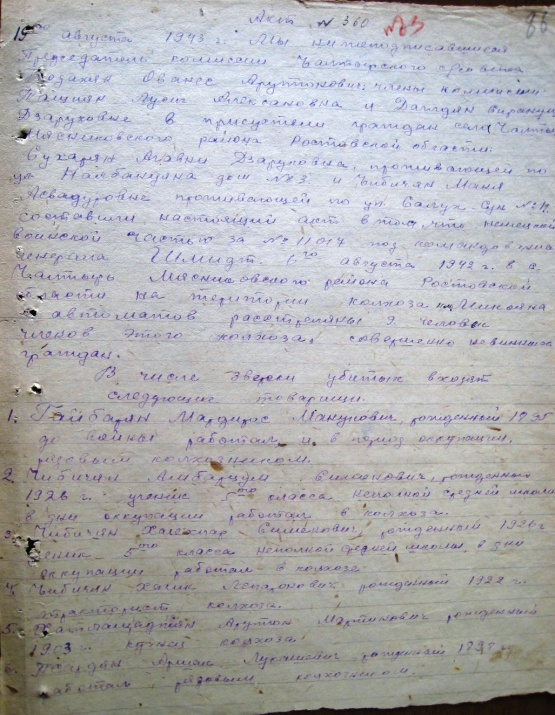 Акт № 360
15 августа 1943 г. Мы нижеподписавшиеся
Председатель комиссии Чалтырского с/совета
Ованес Арутюнович, члены комиссии
Лусик Алексановна и
Дзаруковне в присутствии граждан села Чалтырь
Мясниковского района Ростовской области.
Сухарян Агавни Дзаруковна, проживающей по
ул Налбандяна дом № 3 и Чибичян Маня
Асвадуровне проживающей по ул.
составили настоящий акт в том, что немецкой
воинской частью за № 11017 под командованием
генерала Шмидт 6го августа 1942 г. в с.
Чалтырь Мясниковского района Ростовской
области на територии колхоза Микояна
автоматов расстреляны 9 человек
членов этого колхоза, совершенно невинных
граждан.
В числе зверски убитых входят
следующие товарищи.
1. Гайбарян Мардирос Манукович, рожденный 1895
до войны работал и в период оккупации.
рядовым колхозником.
2. Чибичян Амбарцум Симонович, рожденного
1926 г. ученик 5го класса неполной средней школы
в дни оккупации работал в колхоза.
3. Чибичян Хачехпар Симонович рожденный 1926г
ученик 5го класса неполной средней школы, в дни
оккупации работал в колхозе
4. Чибичян Хачик рожденный 1922 г.
тракторист колхоза.
5. Арутюн Мартынович рожденный
1903 кузнец колхоза
6. рожденный
работал рядовым колхозником.